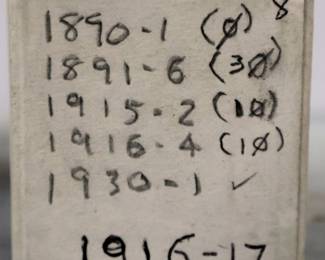 8
1890-1 (0)
1891-6 (30)
1915-2 (10)
1916-4 (10)
1930-1 ✓
1916-17